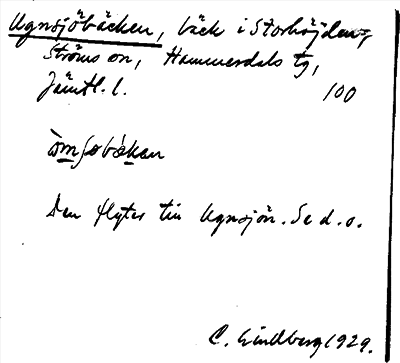 Ugnsjöbäcken, bäck i Storhöjden,
Ströms sn, Hammerdals tg,
Jämtl. l. 100
Den flyter till Ugnsjön. Se d. o.
C. Lindberg 1929.